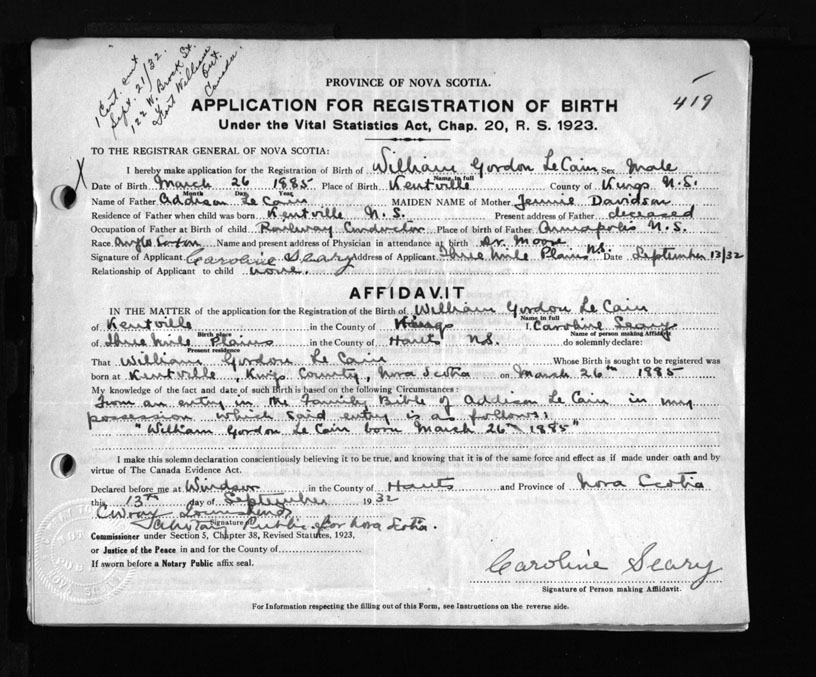 1 Cert. sent
Sept. 21/32.
122 W. Brock St.
Fort William
Ont.
Canada.
419
PROVINCE OF NOVA SCOTIA.
APPLICATION FOR REGISTRATION OF BIRTH
Under the Vital Statistics Act, Chap. 20, R. S. 1923.
TO THE REGISTRAR GENERAL OF NOVA SCOTIA:
X
I hereby make application for the Registration of Birth of William Gordon Le Cain Sex Male
Name in full
Date of Birth March 26 1885 Place of Birth Kentville County of Kings N.S.
Month Day Year
Name of Father Addison Le Cain MAIDEN NAME of Mother Jennie Davidson
Residence of Father when child was born Kentville N.S. Present address of Father deceased
Occupation of Father at Birth of child Railway Conductor Place of birth of Father Annapolis N.S.
Race Anglo Saxon Name and present address of Physician in attendance at birth Dr. Moore
Signature of Applicant Caroline Seary Address of Applicant Three Mile Plains N.S. Date September 13/32
Relationship of Applicant to child none.
AFFIDAVIT
IN THE MATTER of the application for the Registration of the Birth of William Gordon Le Cain
Name in full
of Kentville in the County of Kings I, Caroline Seary
Birth place Name of person making Affidavit
of Three Mile Plains in the County of Hants N.S. do solemnly declare:
Present residence
That William Gordon Le Cain Whose Birth is sought to be registered was
born at Kentville, Kings County, Nova Scotia on March 26th 1885
My knowledge of the fact and date of such Birth is based on the following Circumstances:
From an entry in the Family Bible of Addison Le Cain in my
possession which said entry is as follows:
"William Gordon Le Cain born March 26th 1885"
I make this solemn declaration conscientiously believing it to be true, and knowing that it is of the same force and effect as if made under oath and by
virtue of The Canada Evidence Act.
Declared before me at Windsor in the County of Hants and Province of Nova Scotia
this 13th day of September 1932
Signature
Notary Public for Nova Scotia.
Commissioner under Section 5, Chapter 38, Revised Statutes, 1923,
or Justice of the Peace in and for the County of
If sworn before a Notary Public affix seal.
Caroline Seary
Signature of Person making Affidavit.
For Information respecting the filling out of this Form, see Instructions on the reverse side.